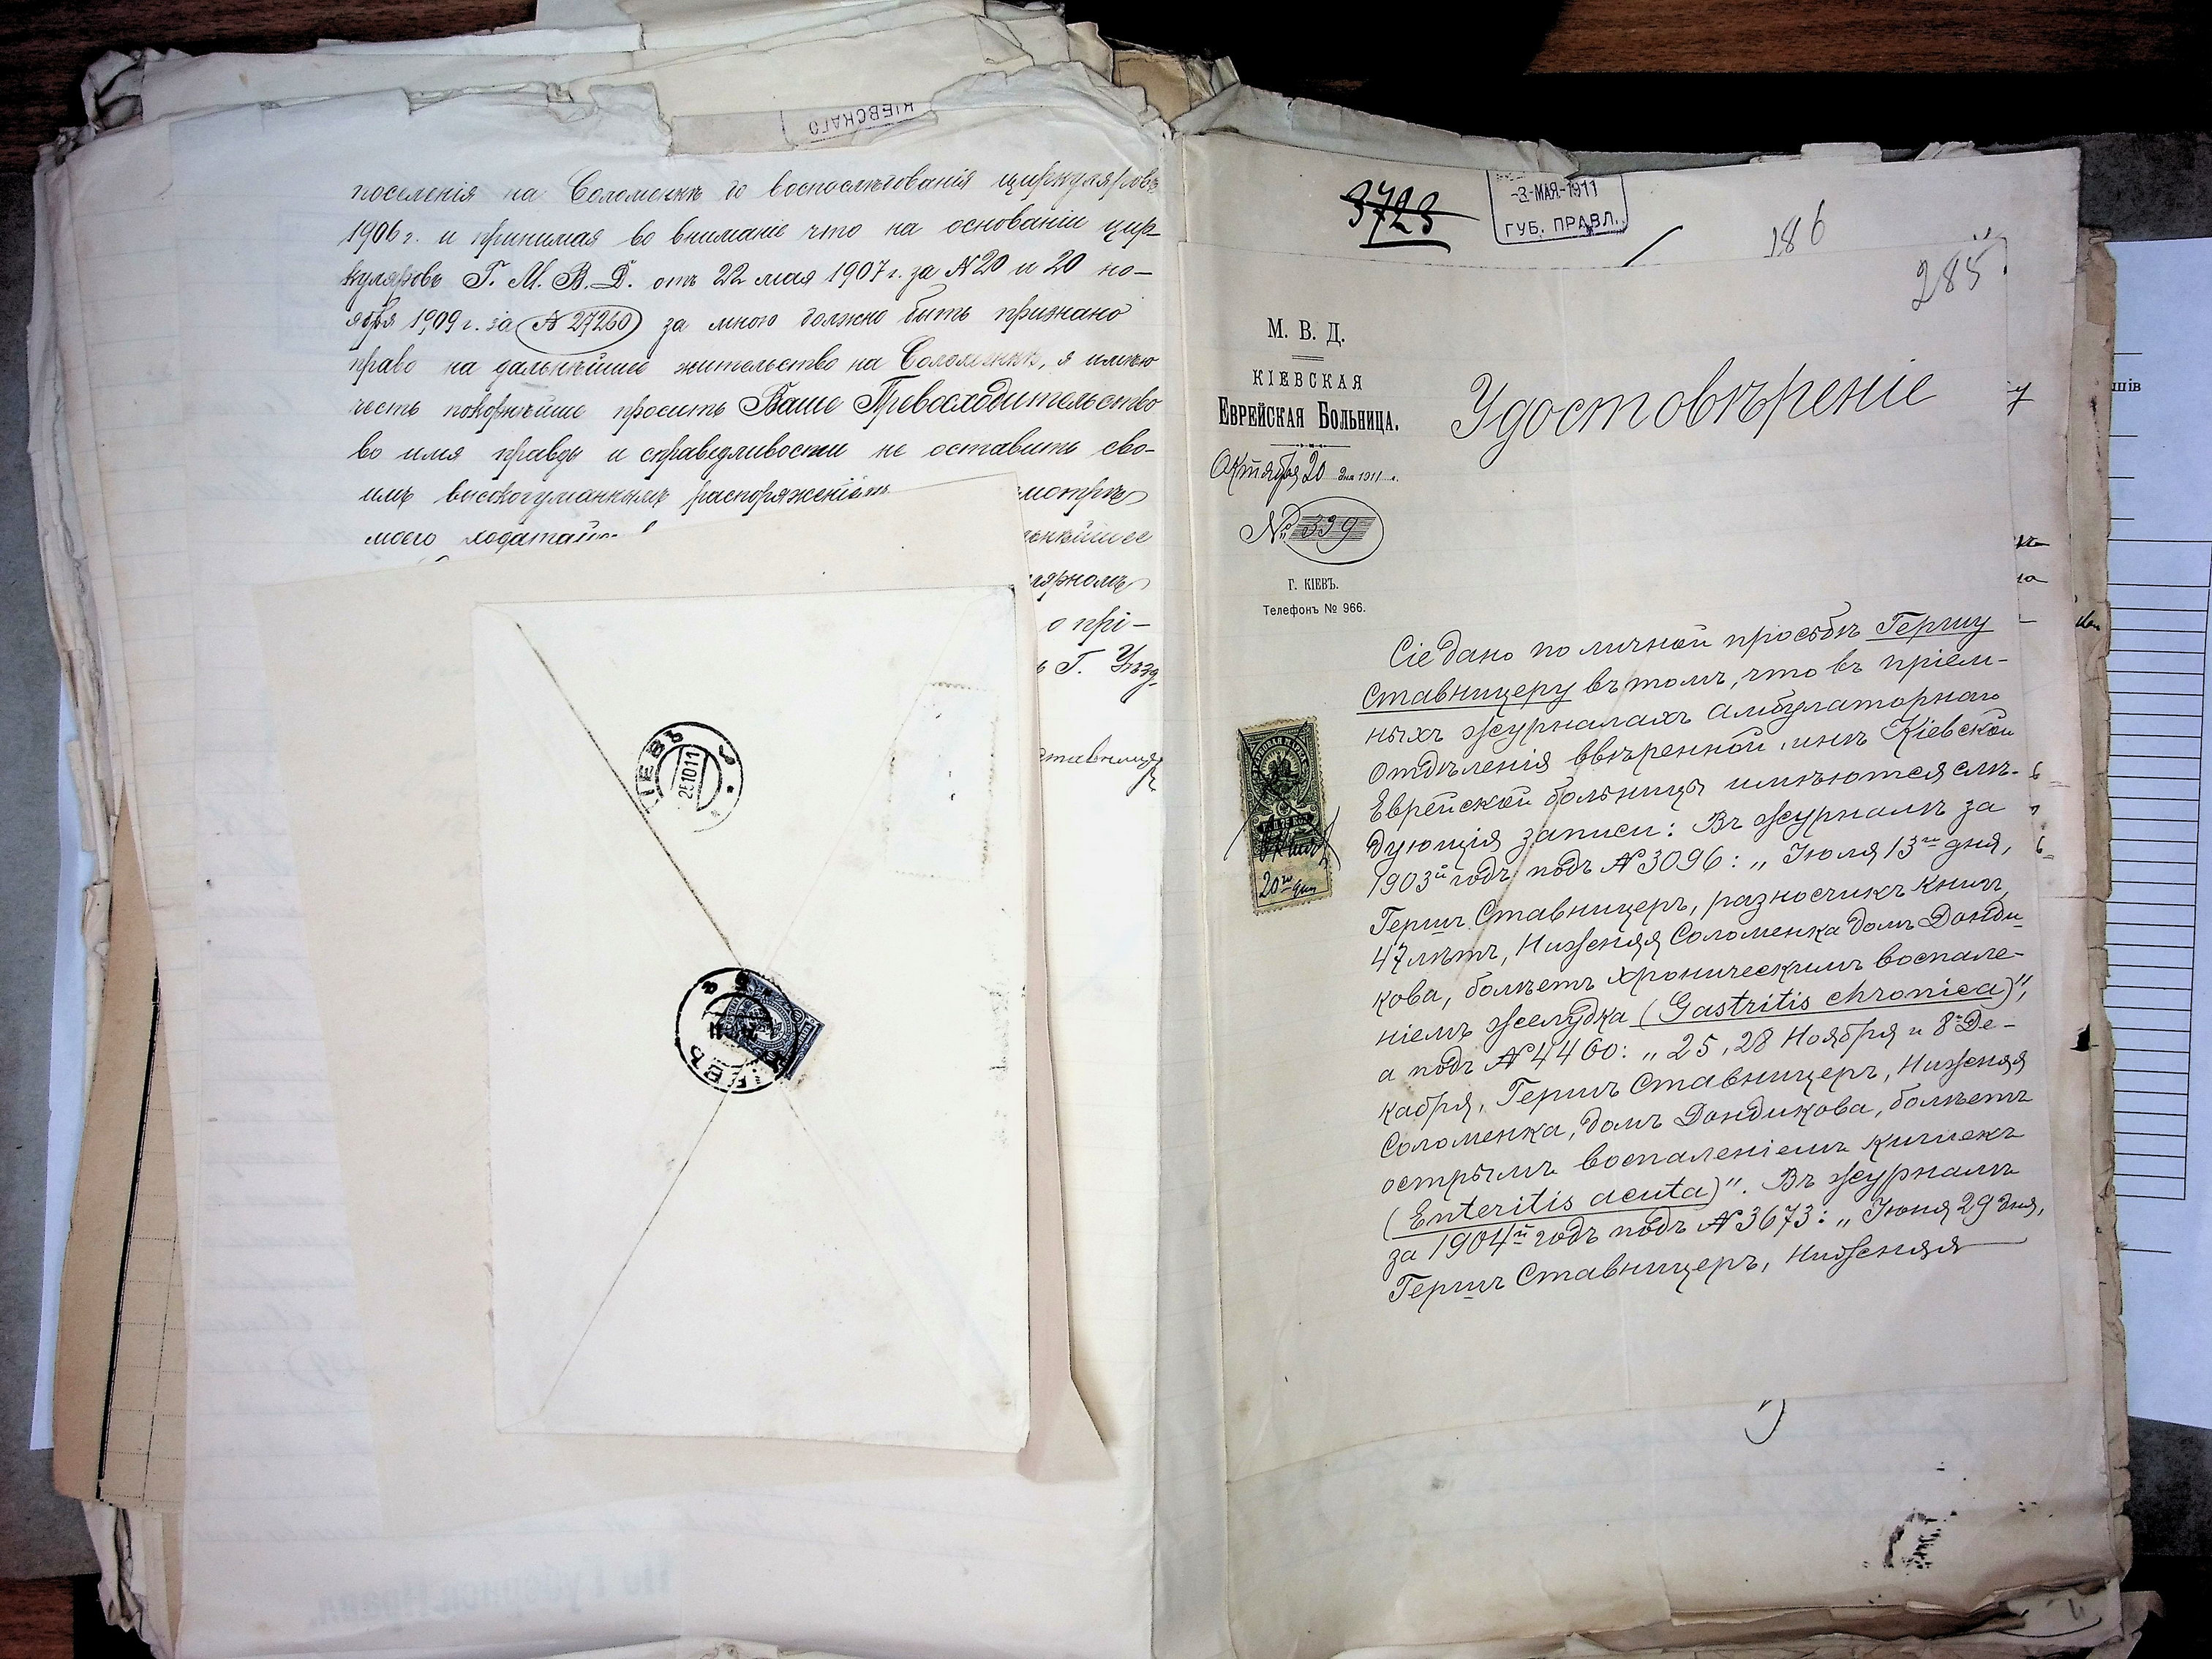 КІЕВСКАГО
поселенія на Соломенкѣ до воспослѣдованія циркуляровъ
1906 г. и принимая во вниманіе что на основаніи цир-
куляровъ Г. М. В. Д. отъ 22 мая 1907 г. за № 20 и 20 но-
ября 1909 г. за № 27260 за мною должно быть признано
право на дальнѣйшее жительство на Соломенкѣ, я имѣю
честь покорнѣйше просить Ваше Превосходительство
во имя правды и справедливости не оставить сво-
имъ высокогуманнымъ распоряженіемъ
моего
о прі-
Г. Уѣзд-
КІЕВЪ
251011
КІЕВЪ
3723
-3-МАЯ-1911
ГУБ. ПРАВЛ.
186
285
М. В. Д.
КІЕВСКАЯ
ЕВРЕЙСКАЯ БОЛЬНИЦА.
Октября 20 дня 1911 г.
№ 399
Г. КІЕВЪ.
Телефонъ № 966.
Удостовѣреніе
20го дня
Сіе дано по личной просьбѣ Гершу
Ставницеру въ томъ, что въ пріем-
ныхъ журналахъ Амбулаторнаго
Отдѣленія ввѣренной мнѣ Кіевской
Еврейской больницы имѣются слѣ-
дующія записи: Въ журналѣ за
1903й годъ подъ № 3096: „Іюля 13го дня,
Гершъ Ставницеръ, разносчикъ книгъ,
47 лѣтъ, Нижняя Соломенка домъ Донди-
кова, болѣетъ хроническимъ воспале-
ніемъ желудка (Gastritis chronica)",
а подъ № 4460: „25, 28 Ноября и 8 Де-
кабря, Гершъ Ставницеръ, Нижняя
Соломенка, домъ Дондикова, болѣетъ
острымъ воспаленіемъ кишекъ
(Enteritis acuta)". Въ журналѣ
за 1904й годъ подъ № 3673: „Іюня 29 дня,
Гершъ Ставницеръ, Нижняя